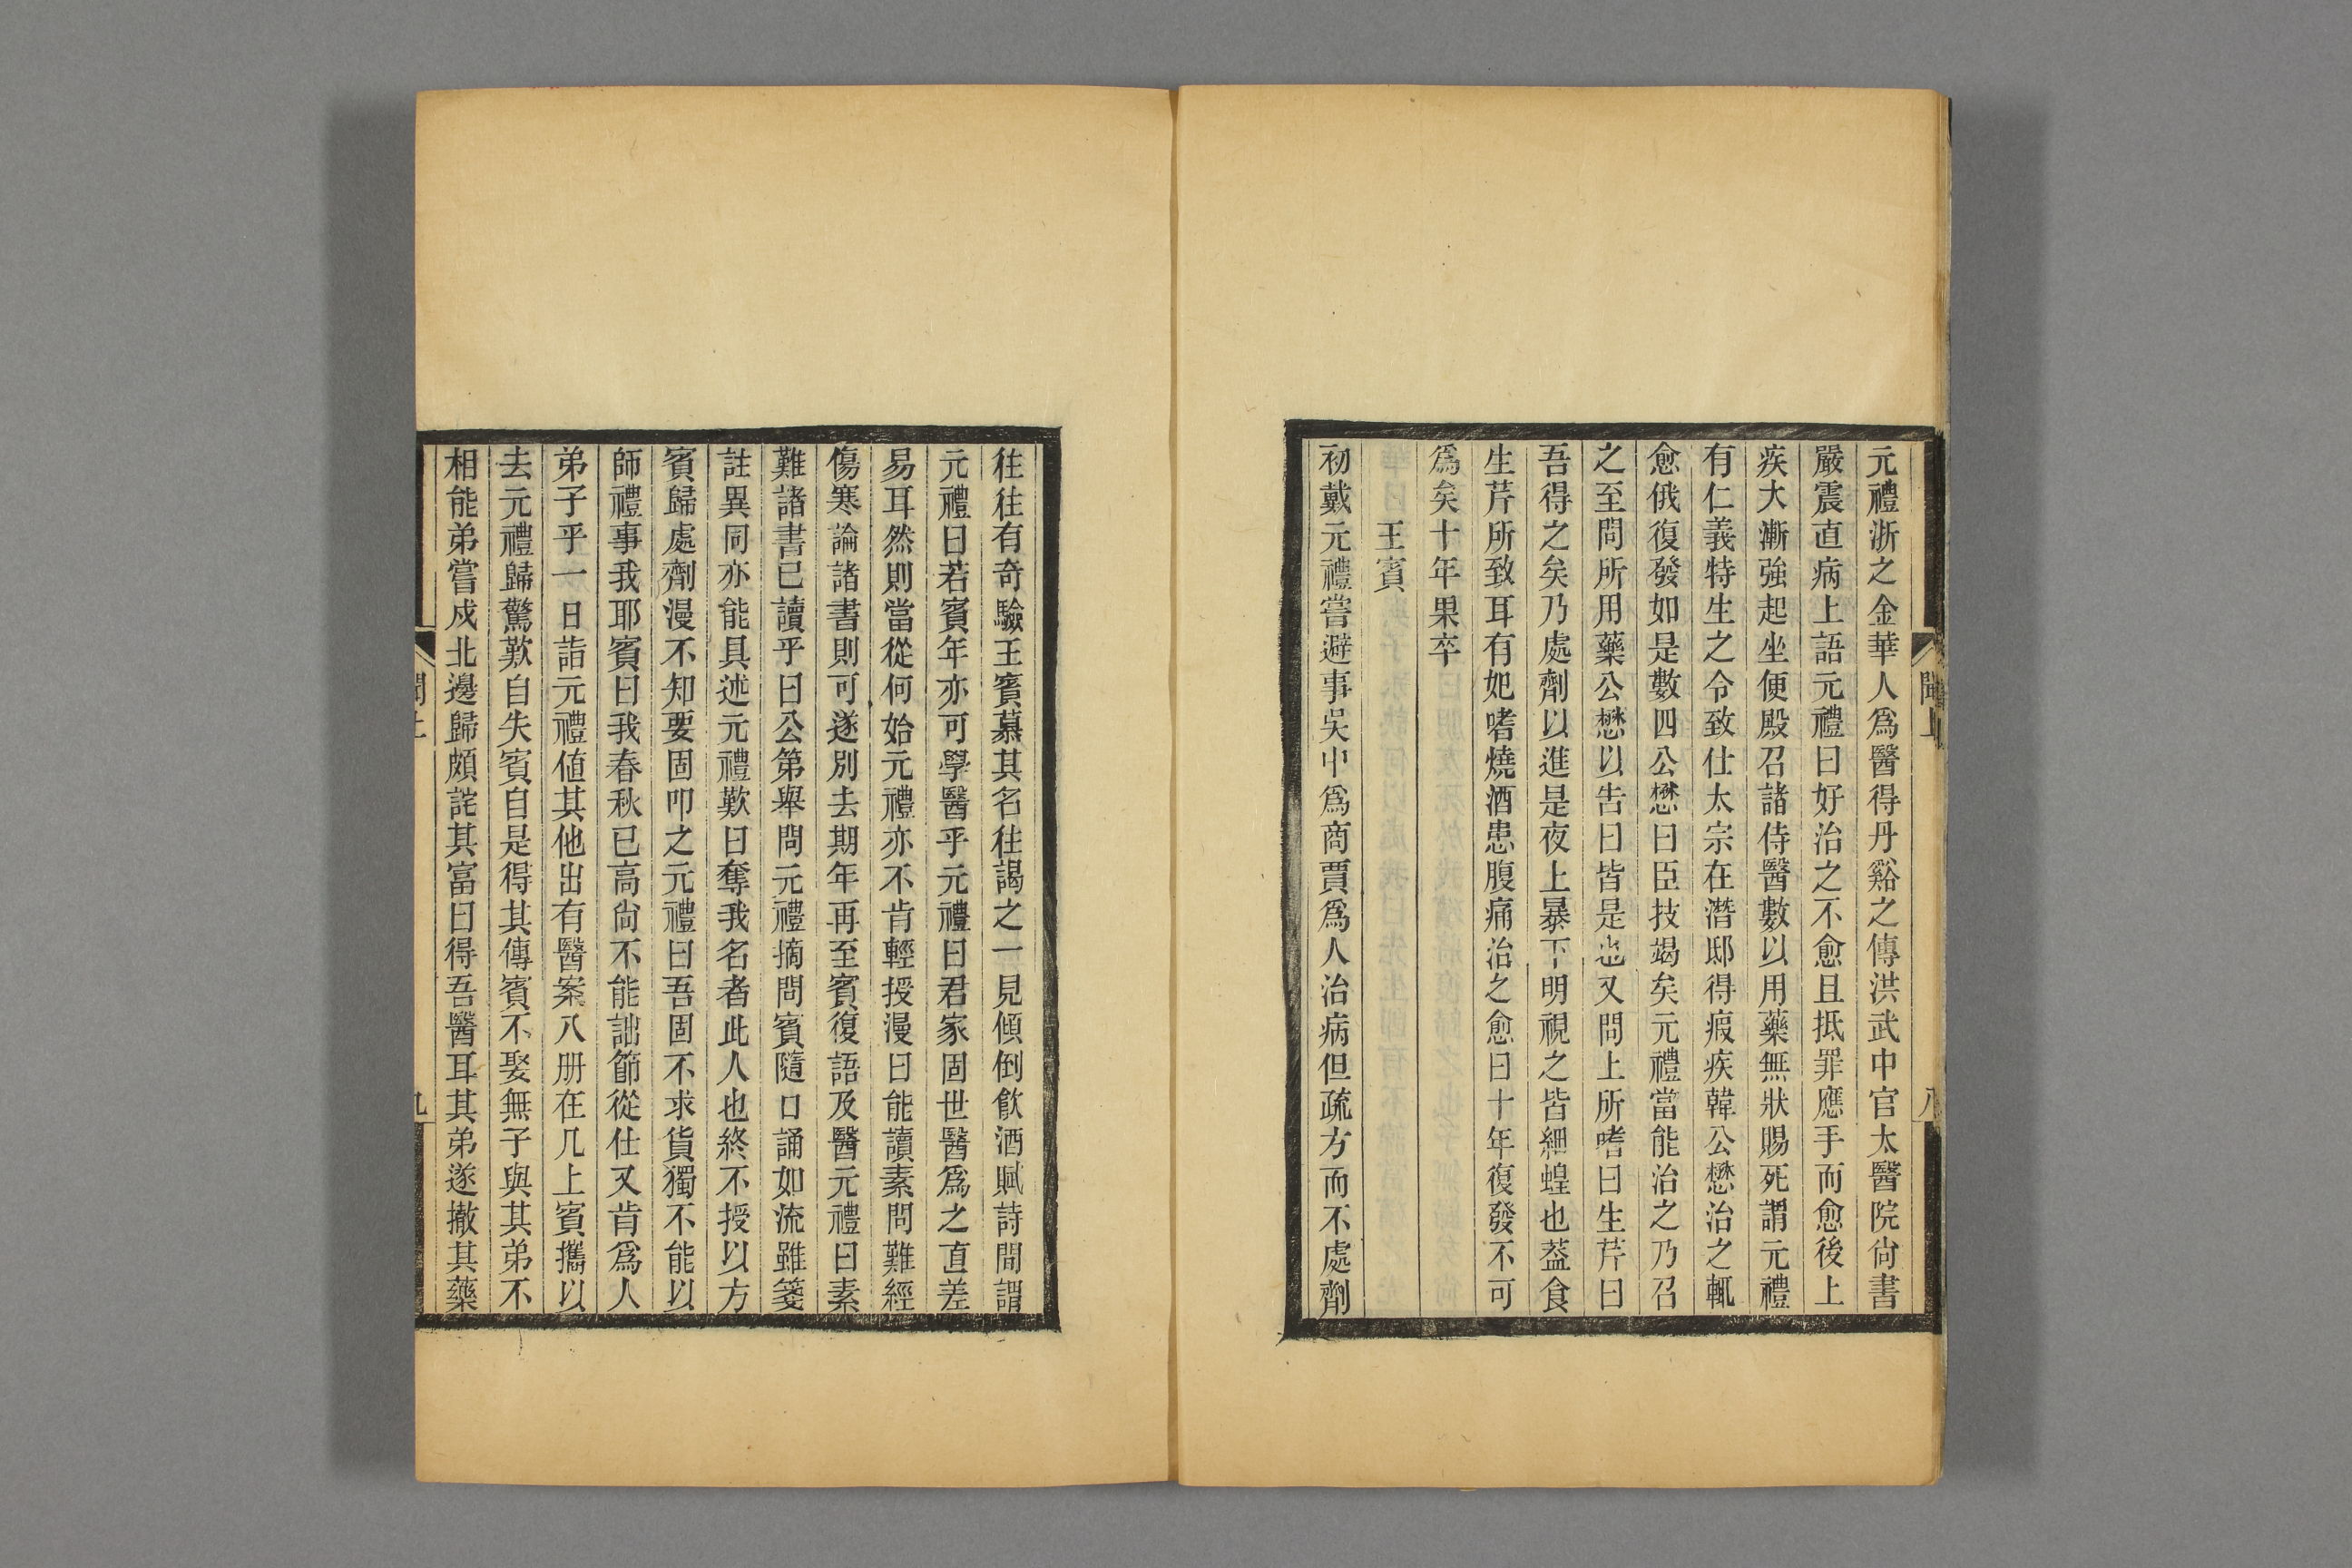 元禮浙之金華人爲醫得丹谿之傳洪武中官太醫院尙書
嚴震直病上語元禮曰好治之不愈且抵罪應手而愈後上
疾大漸強起坐便殿召諸侍醫數以用藥無狀賜死謂元禮
有仁義特生之令致仕太宗在潛邸得瘕疾韓公懋治之輒
愈俄復發如是數四公懋曰臣技竭矣元禮當能治之乃召
之至問所用藥公懋以吿曰皆是也又問上所嗜曰生芹曰
吾得之矣乃處劑以進是夜上暴下明視之皆細蝗也葢食
生芹所致耳有妃嗜燒酒患腹痛治之愈曰十年復發不可
爲矣十年果卒
王賓
初戴元禮嘗避事吳中爲商賈爲人治病但疏方而不處劑
往往有奇驗王賓慕其名往謁之一見傾倒飮酒賦詩間謂
元禮曰若賓年亦可學醫乎元禮曰君家固世醫爲之直差
易耳然則當從何始元禮亦不肯輕授漫曰能讀素問難經
傷寒論諸書則可遂別去期年再至賓復語及醫元禮曰素
難諸書已讀乎曰公第舉問元禮摘問賓隨口誦如流雖箋
註異同亦能具述元禮歎曰奪我名者此人也終不授以方
賓歸處劑漫不知要固叩之元禮曰吾固不求貨獨不能以
師禮事我耶賓曰我春秋已高尙不能詘節從仕又肯爲人
弟子乎一日詣元禮値其他出有醫案八册在几上賓攜以
去元禮歸驚歎自失賓自是得其傳賓不娶無子與其弟不
相能弟嘗戍北邊歸頗詫其富曰得吾醫耳其弟遂撤其藥
聞上
八
聞上
九